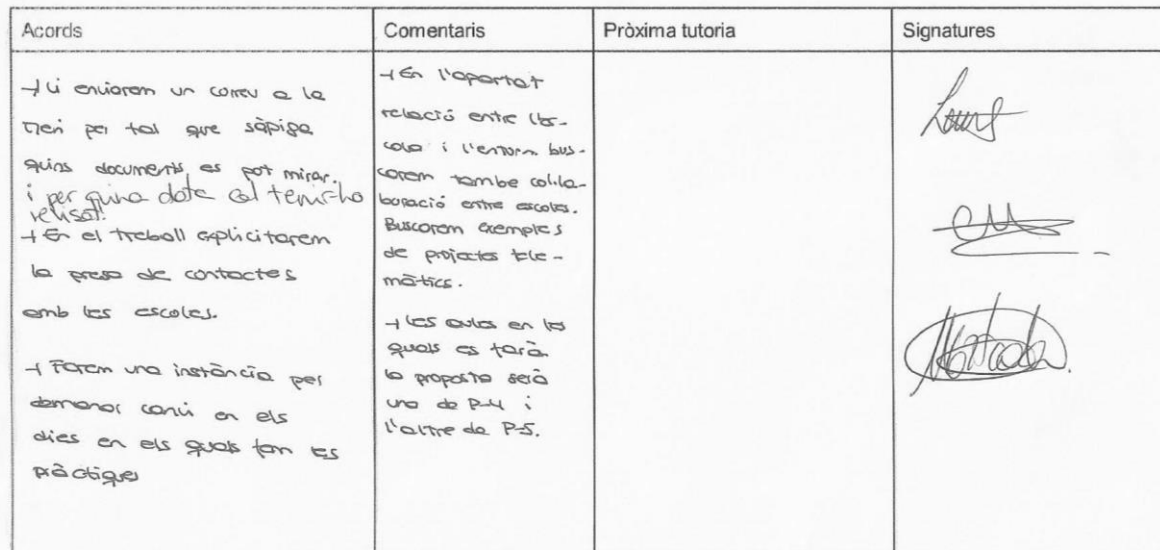 Acords
Comentaris
Pròxima tutoria
Signatures
→ Li enviarem un correu a la
Meri per tal que sàpiga
quins documents es pot mirar.
i per quina data cal tenir-ho
revisat.
→ En el treball explicitarem
la presa de contactes
amb les escoles.
→ Farem una instància per
demanar canvi en els
dies en els quals fan les
pràctiques
→ En l'apartat
relació entre l'es-
cola i l'entorn bus-
carem tambe col·la-
boració entre escoles.
Buscarem exemples
de projectes tele-
màtics.
→ Les aules en les
quals es farà
la proposta serà
una de P-4 i
l'altre de P-5.